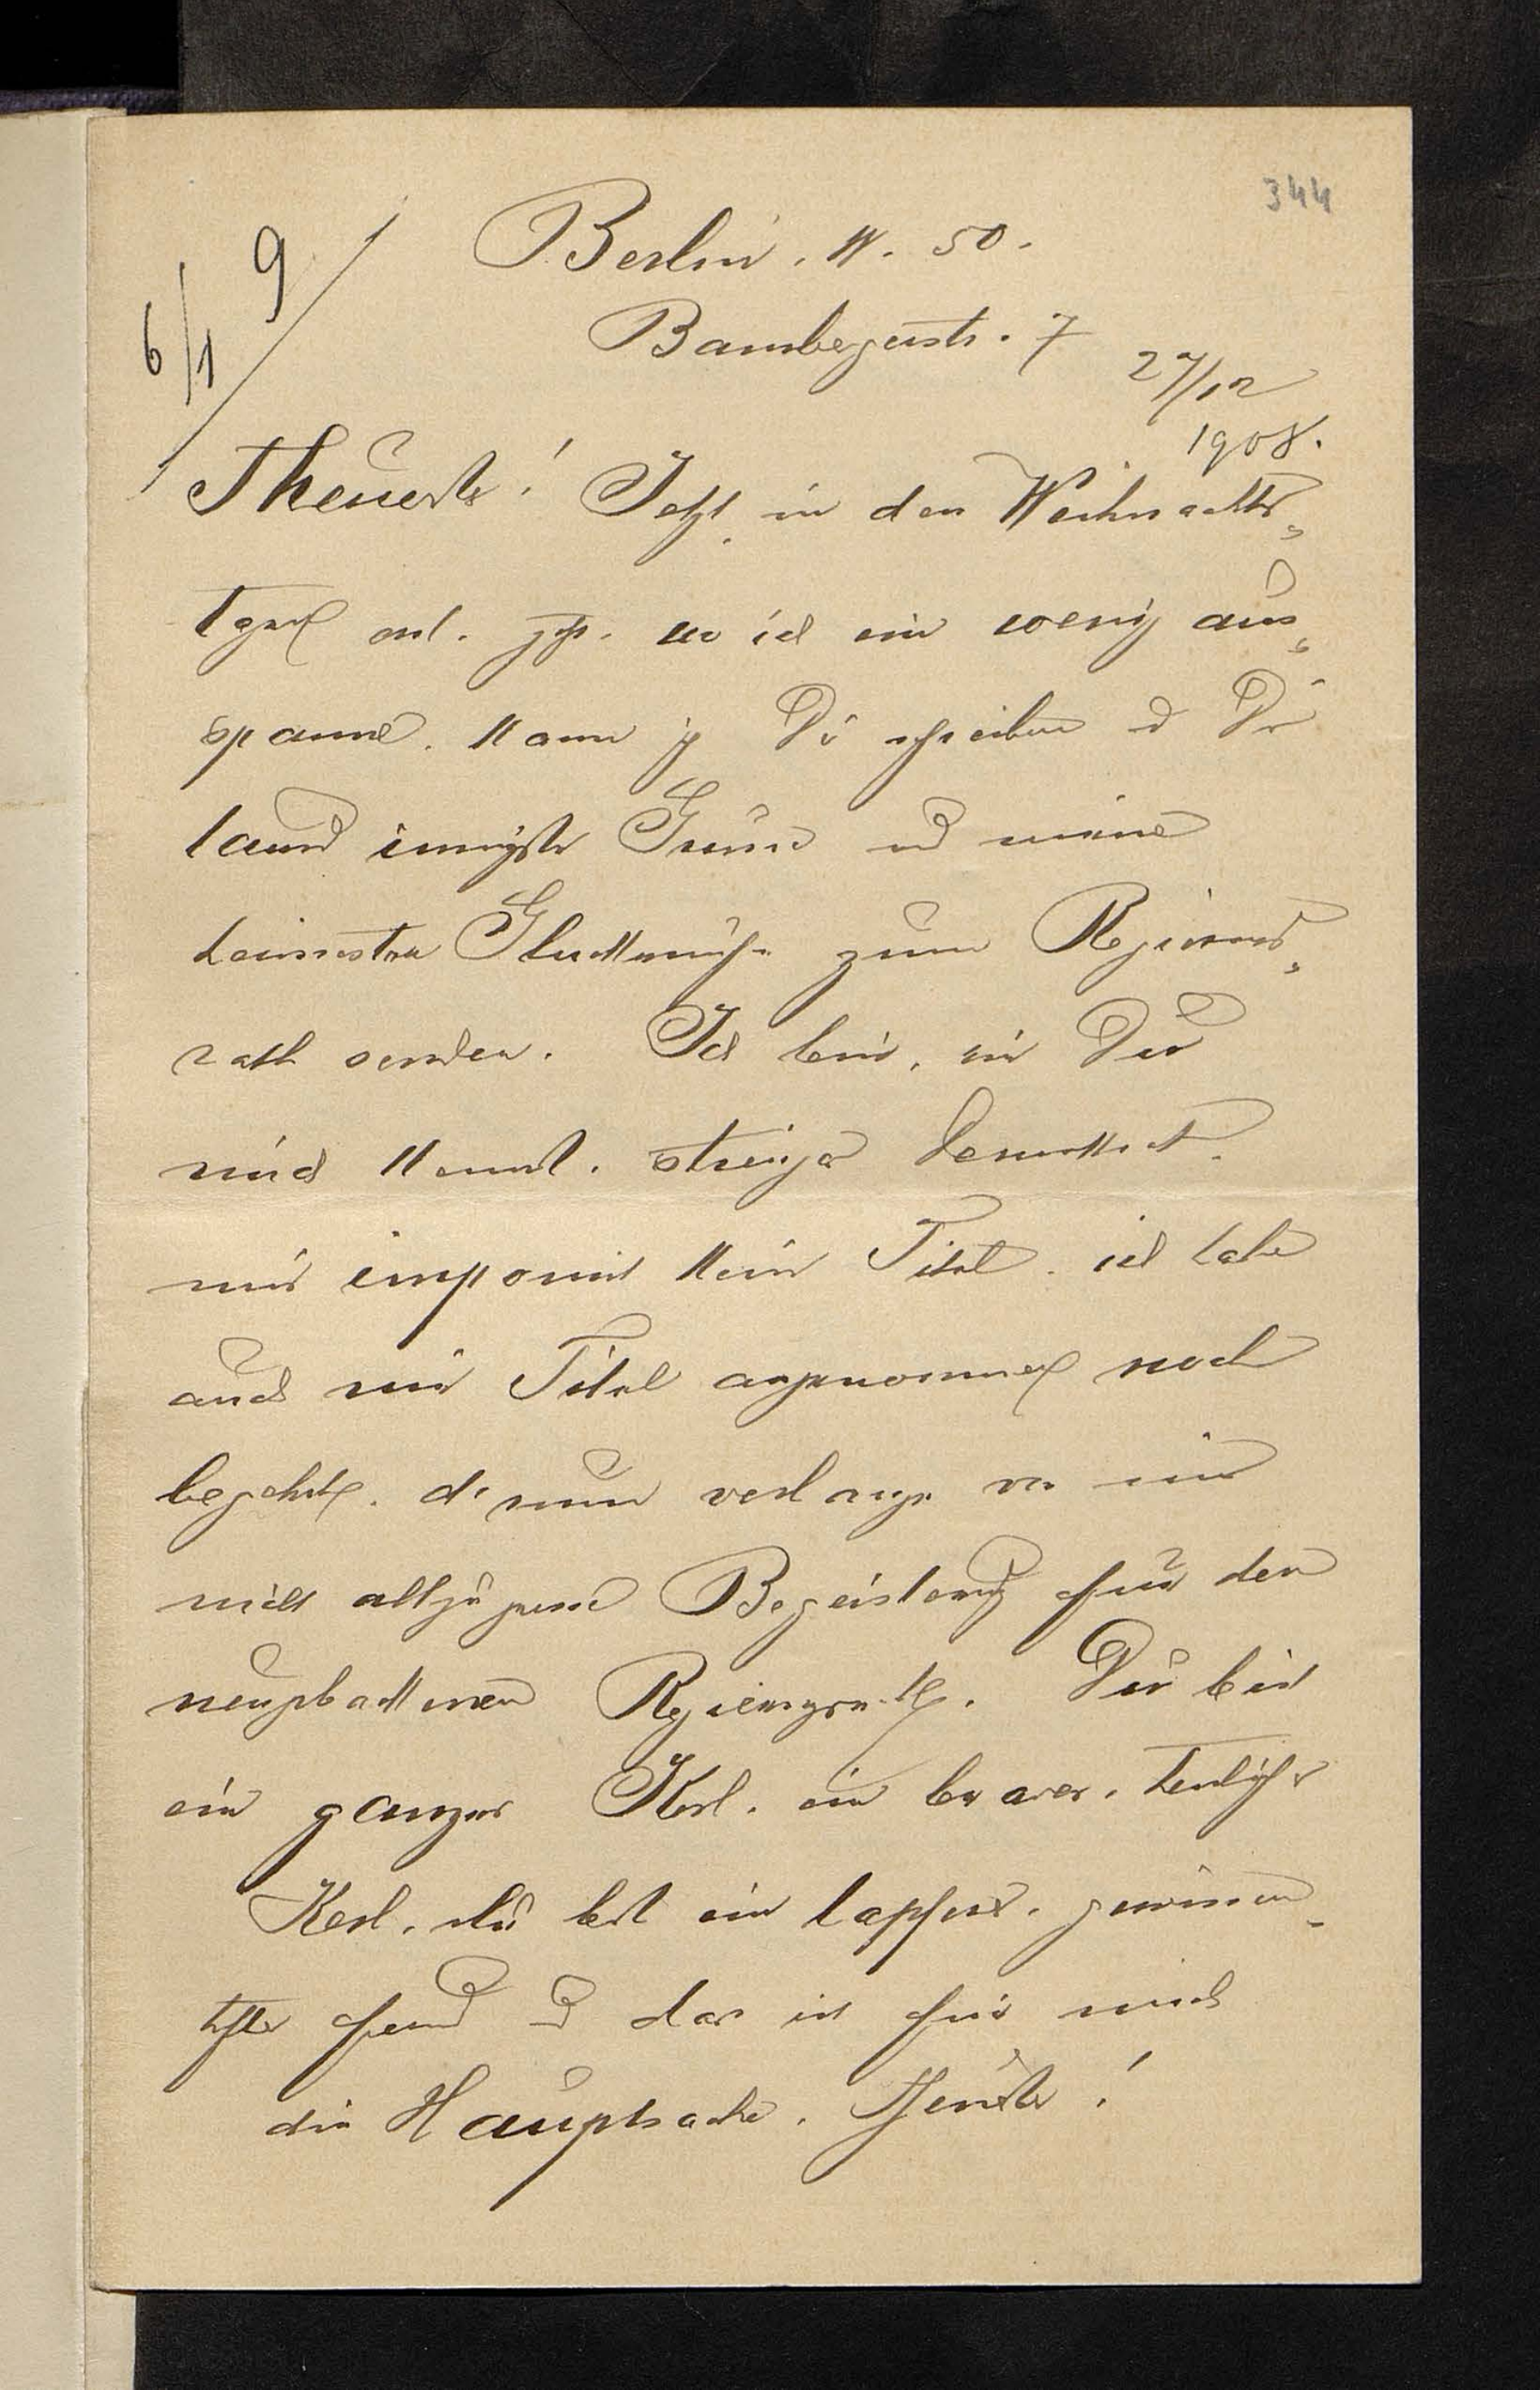 344
6/1 9
Berlin. W. 50.
Bambergerstr. 7
27/12
1908.
Theuerster! Jetzt, in den Weihnachts-
tagen erst, wo ich ein wenig aus-
spanne, kann ich Dir schreiben und Dir
tausend innigste Grüsse und meine
heissesten Glückwünsche zum Regierungs-
rath senden. Ich bin, wie Du
mich kennst, strenger Demokrat,
mir imponirt kein Titel, ich habe
auch nie Titel angenommen noch
begehrt, d'rum verlange von mir
nicht allzugrosse Begeisterung für den
neugebackenen Regierungsrath. Du bist
ein ganzer Kerl, ein braver, herrlicher
Kerl, du bist ein tapferer, gewissen-
hafter Freund und das ist für mich
die Hauptsache. Theuerster!